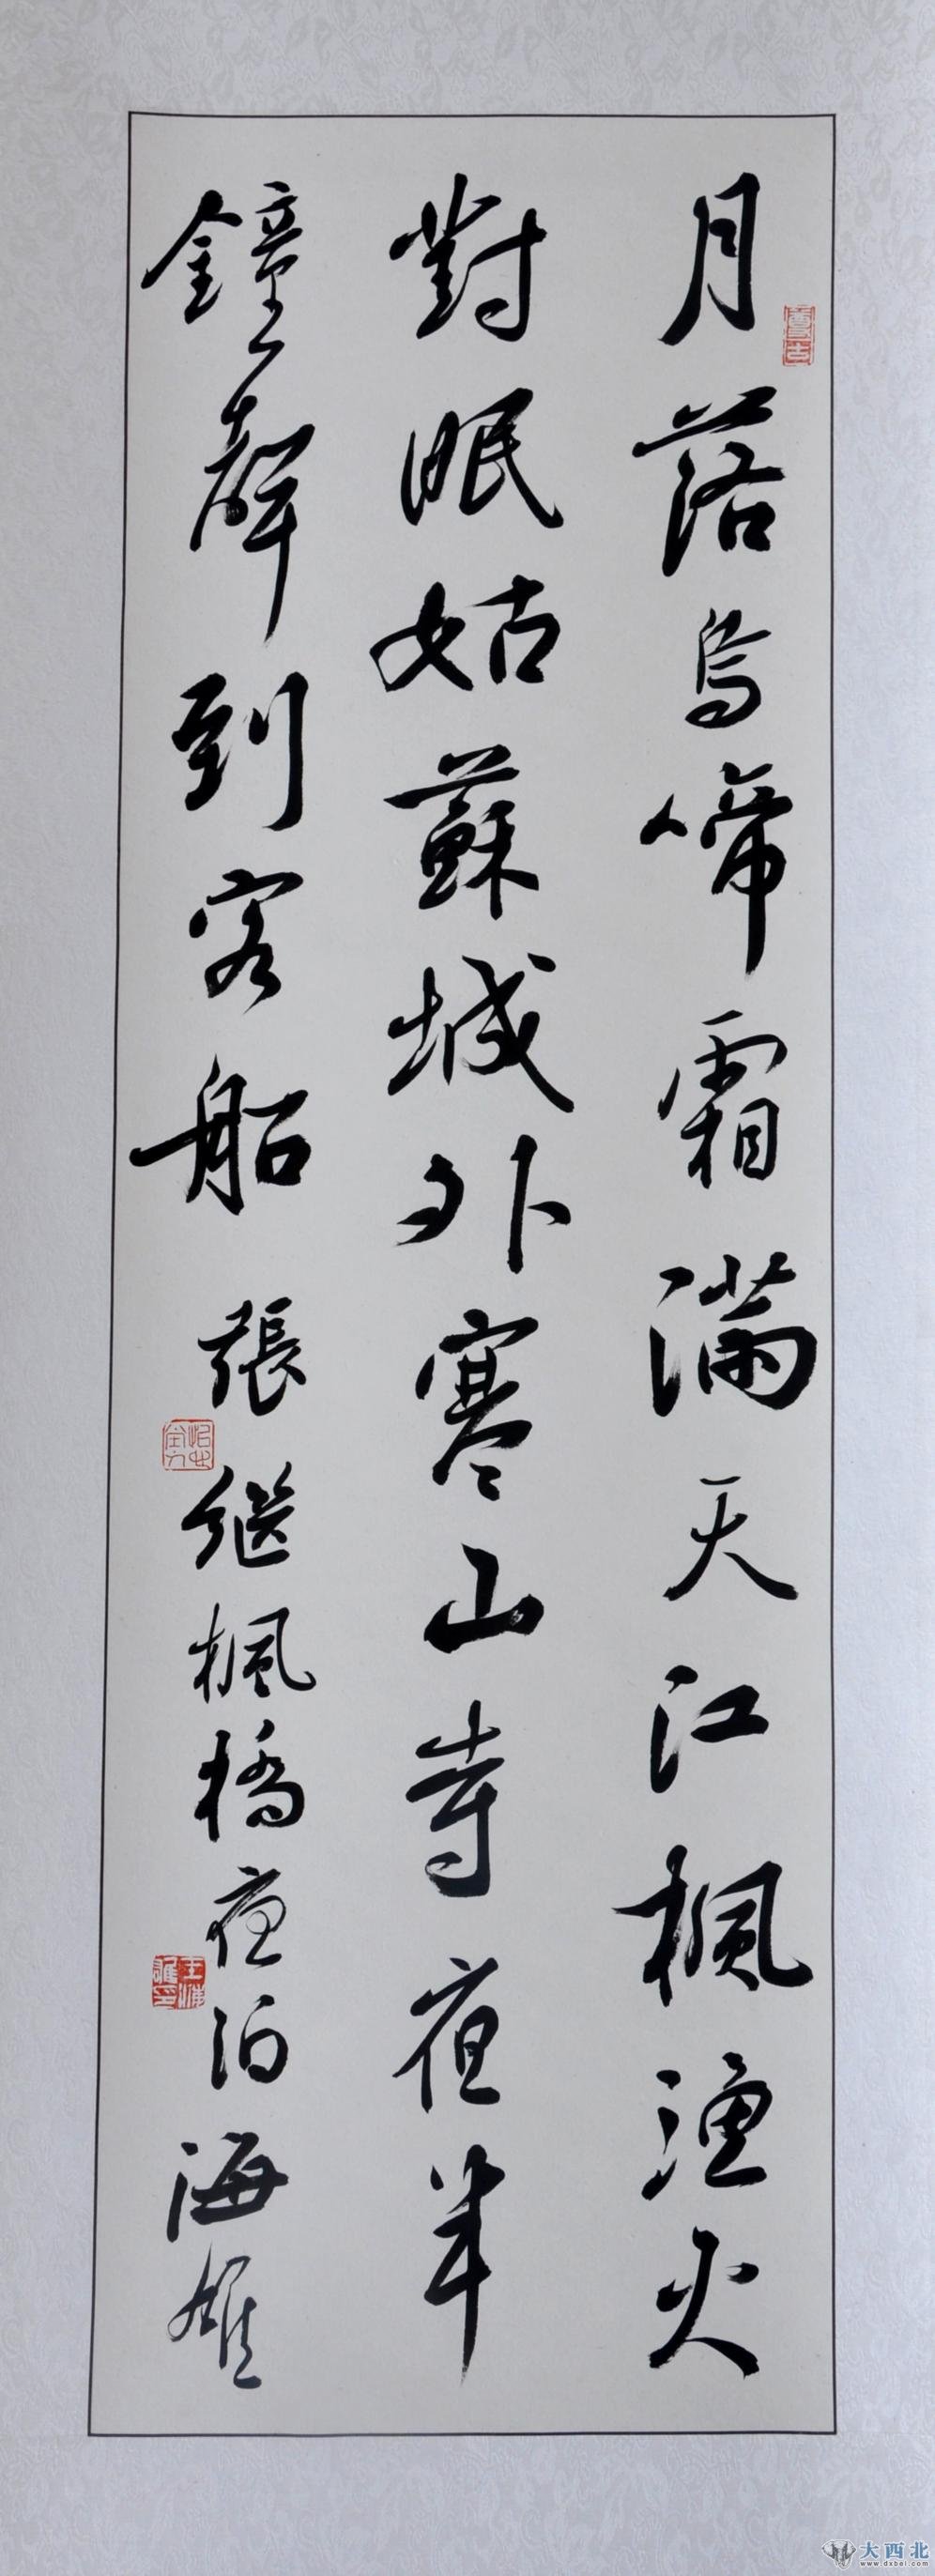 月落烏啼霜滿天江楓漁火
對眠姑蘇城外寒山寺夜半
鐘聲到客船 張继楓橋夜泊海雄
大西北
www.dxbei.com